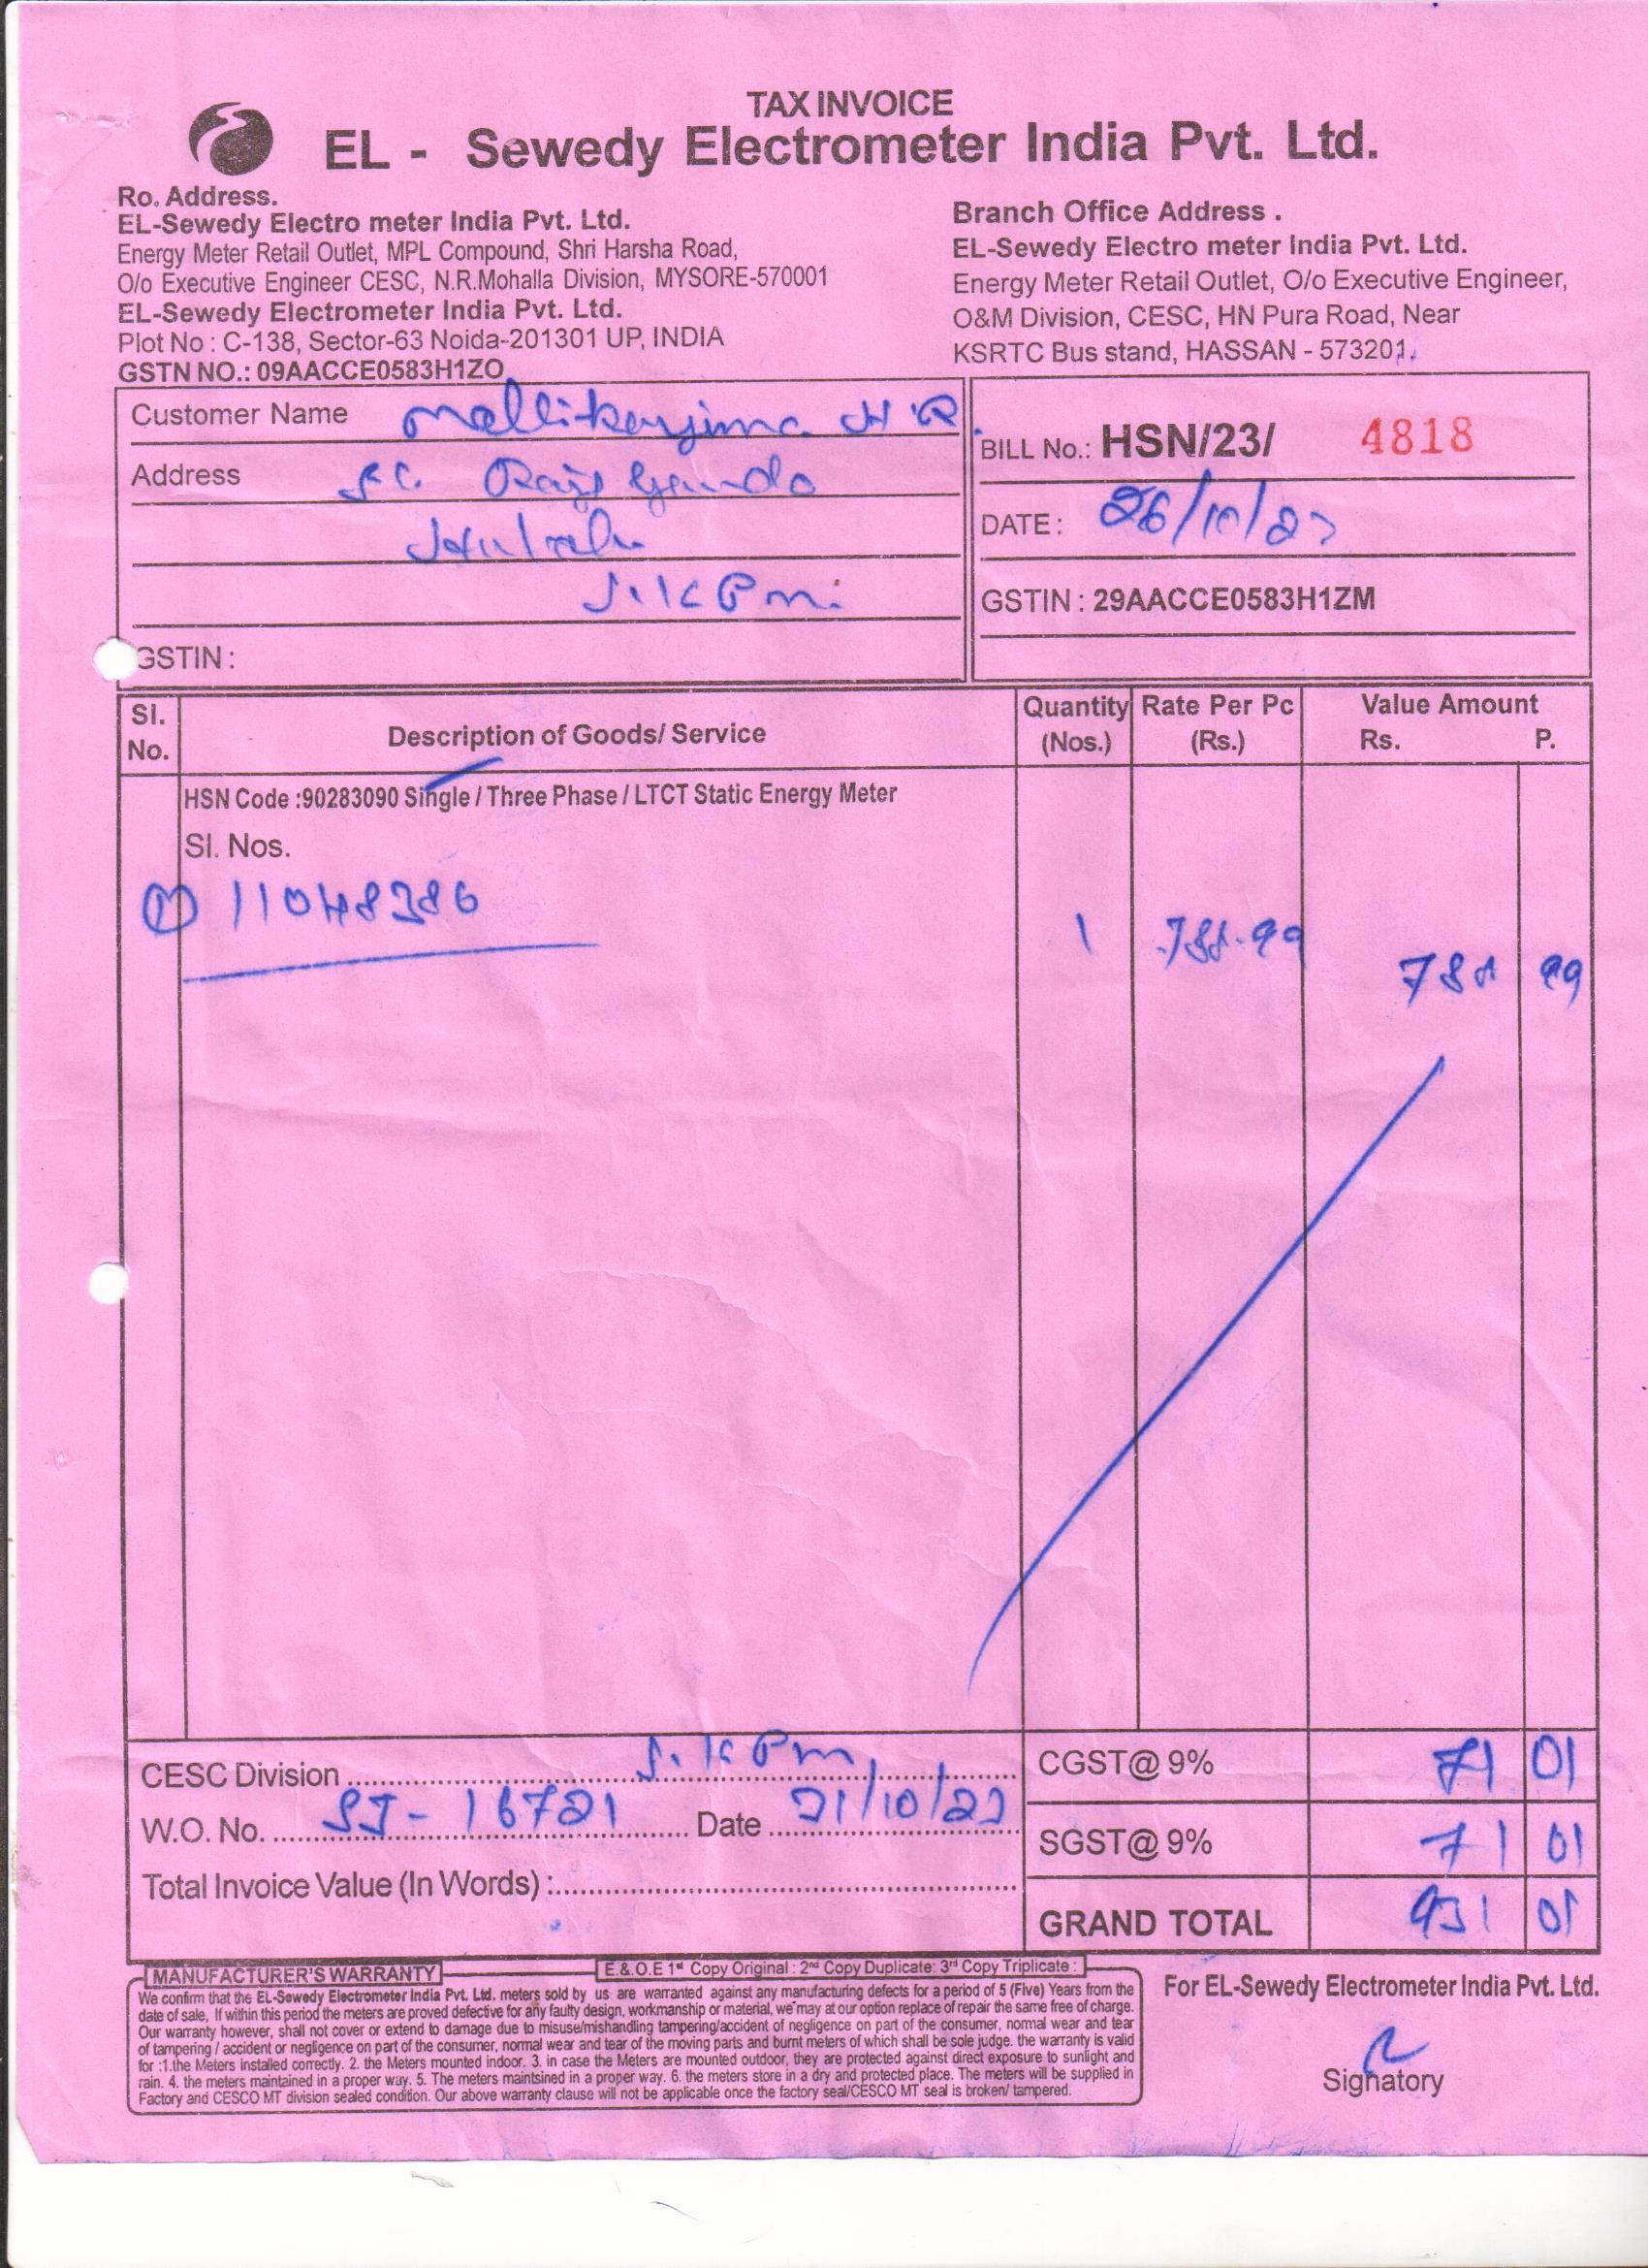 TAX INVOICE
EL - Sewedy Electrometer India Pvt. Ltd.
Ro. Address.
EL-Sewedy Electro meter India Pvt. Ltd.
Energy Meter Retail Outlet, MPL Compound, Shri Harsha Road,
O/o Executive Engineer CESC, N.R.Mohalla Division, MYSORE-570001
EL-Sewedy Electrometer India Pvt. Ltd.
Plot No : C-138, Sector-63 Noida-201301 UP, INDIA
GSTN NO.: 09AACCE0583H1ZO
Branch Office Address .
EL-Sewedy Electro meter India Pvt. Ltd.
Energy Meter Retail Outlet, O/o Executive Engineer,
O&M Division, CESC, HN Pura Road, Near
KSRTC Bus stand, HASSAN - 573201.
Customer Name Mallikarjuna H R
Address
GSTIN :
BILL No.: HSN/23/ 4818
DATE : 26/10/23
GSTIN : 29AACCE0583H1ZM
Sl. No. Description of Goods/ Service Quantity (Nos.) Rate Per Pc (Rs.) Value Amount Rs. P.
HSN Code :90283090 Single / Three Phase / LTCT Static Energy Meter
Sl. Nos.
11048386 1 788.99 788 99
CESC Division S.K Pm
W.O. No. SJ-16721 Date 21/10/23
Total Invoice Value (In Words) :
CGST@ 9% 71 01
SGST@ 9% 71 01
GRAND TOTAL 931 01
MANUFACTURER'S WARRANTY
E.&.O.E 1st Copy Original : 2nd Copy Duplicate: 3rd Copy Triplicate :
We confirm that the EL-Sewedy Electrometer India Pvt. Ltd. meters sold by us are warranted against any manufacturing defects for a period of 5 (Five) Years from the
date of sale, If within this period the meters are proved defective for any faulty design, workmanship or material, we may at our option replace of repair the same free of charge.
Our warranty however, shall not cover or extend to damage due to misuse/mishandling tampering/accident of negligence on part of the consumer, normal wear and tear
of tampering / accident or negligence on part of the consumer, normal wear and tear of the moving parts and burnt meters of which shall be sole judge. the warranty is valid
for :1.the Meters installed correctly. 2. the Meters mounted indoor. 3. in case the Meters are mounted outdoor, they are protected against direct exposure to sunlight and
rain. 4. the meters maintained in a proper way. 5. The meters maintsined in a proper way. 6. the meters store in a dry and protected place. The meters will be supplied in
Factory and CESCO MT division sealed condition. Our above warranty clause will not be applicable once the factory seal/CESCO MT seal is broken/ tampered.
For EL-Sewedy Electrometer India Pvt. Ltd.
Signatory